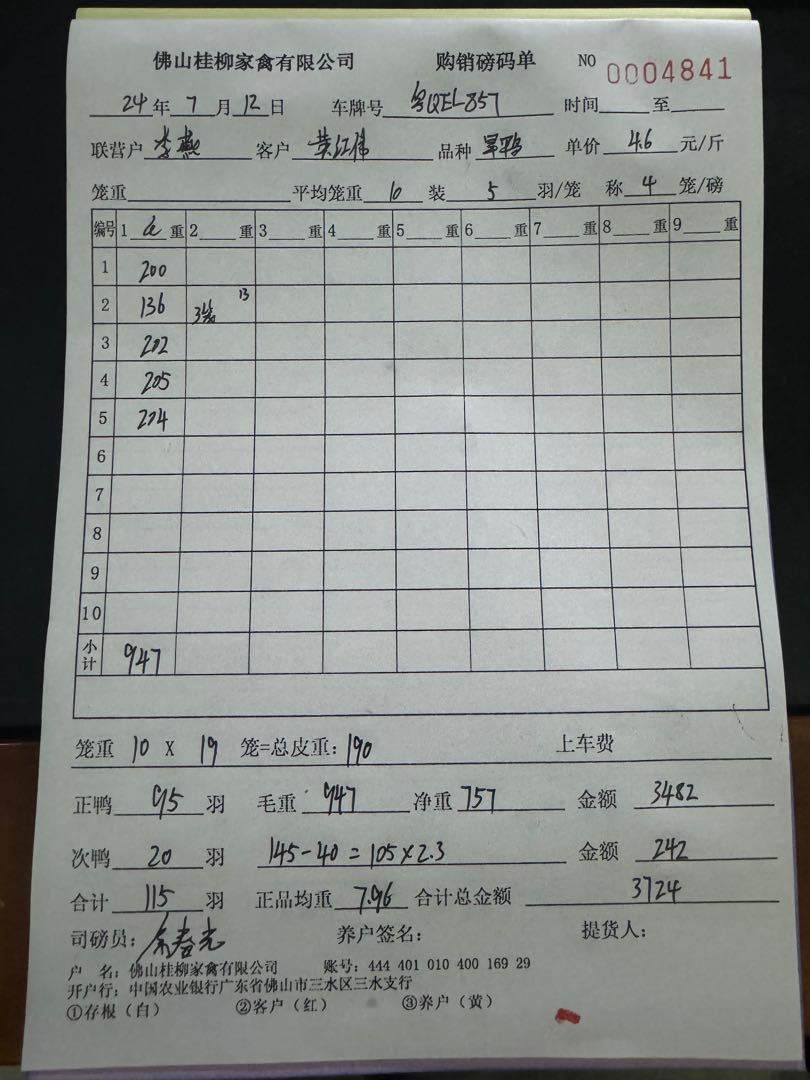 佛山桂柳家禽有限公司 购销磅码单 NO 0004841
24年7月12日 车牌号 粤QEL857 时间 至
联营户 李燕 客户 黄江伟 品种 旱鸭 单价 4.6 元/斤
笼重 平均笼重 10 装 5 羽/笼 称 4 笼/磅
编号 1 重 2 重 3 重 4 重 5 重 6 重 7 重 8 重 9 重
1 200
2 136 3笼 13
3 202
4 205
5 204
6
7
8
9
10
小计 947
笼重 10 X 19 笼=总皮重: 190 上车费
正鸭 95 羽 毛重 947 净重 757 金额 3482
次鸭 20 羽 145-40=105×2.3 金额 242
合计 115 羽 正品均重 7.96 合计总金额 3724
司磅员: 养户签名: 提货人:
户 名: 佛山桂柳家禽有限公司 账号: 444 401 010 400 169 29
开户行: 中国农业银行广东省佛山市三水区三水支行
①存根(白) ②客户(红) ③养户(黄)